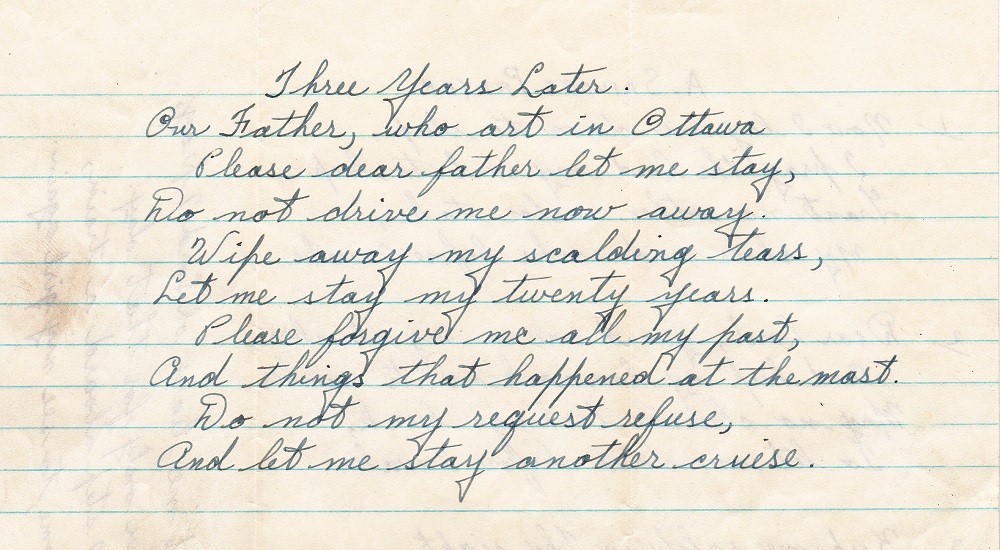 Three Years Later.
Our Father, who art in Ottawa
Please dear father let me stay,
Do not drive me now away.
Wipe away my scalding tears,
Let me stay my twenty years.
Please forgive me all my past,
And things that happened at the mast.
Do not my request refuse,
And let me stay another cruise.